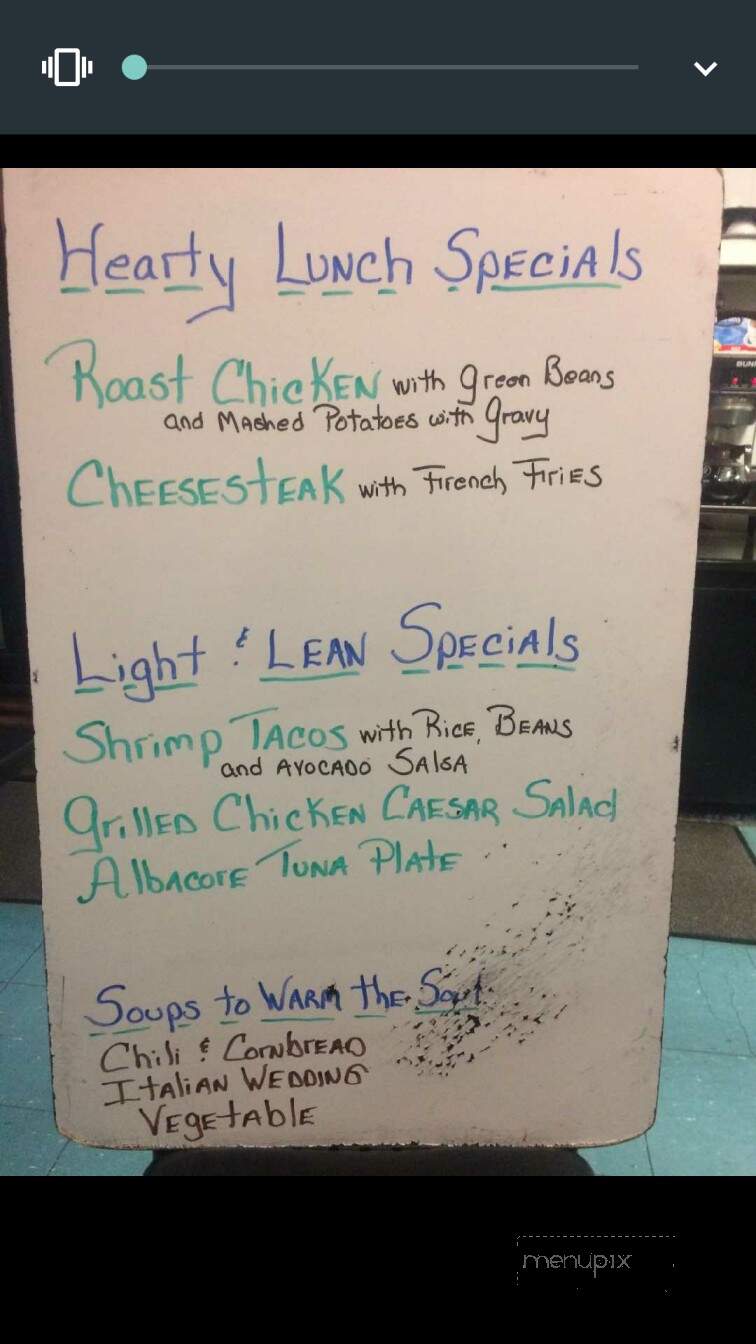 Hearty Lunch Specials
Roast Chicken with green Beans
and Mashed Potatoes with gravy
Cheesesteak with French Fries
Light & Lean Specials
Shrimp Tacos with Rice, Beans
and Avocado Salsa
Grilled Chicken Caesar Salad
Albacore Tuna Plate
Soups to Warm the Soul
Chili & Cornbread
Italian Wedding
Vegetable
menupix